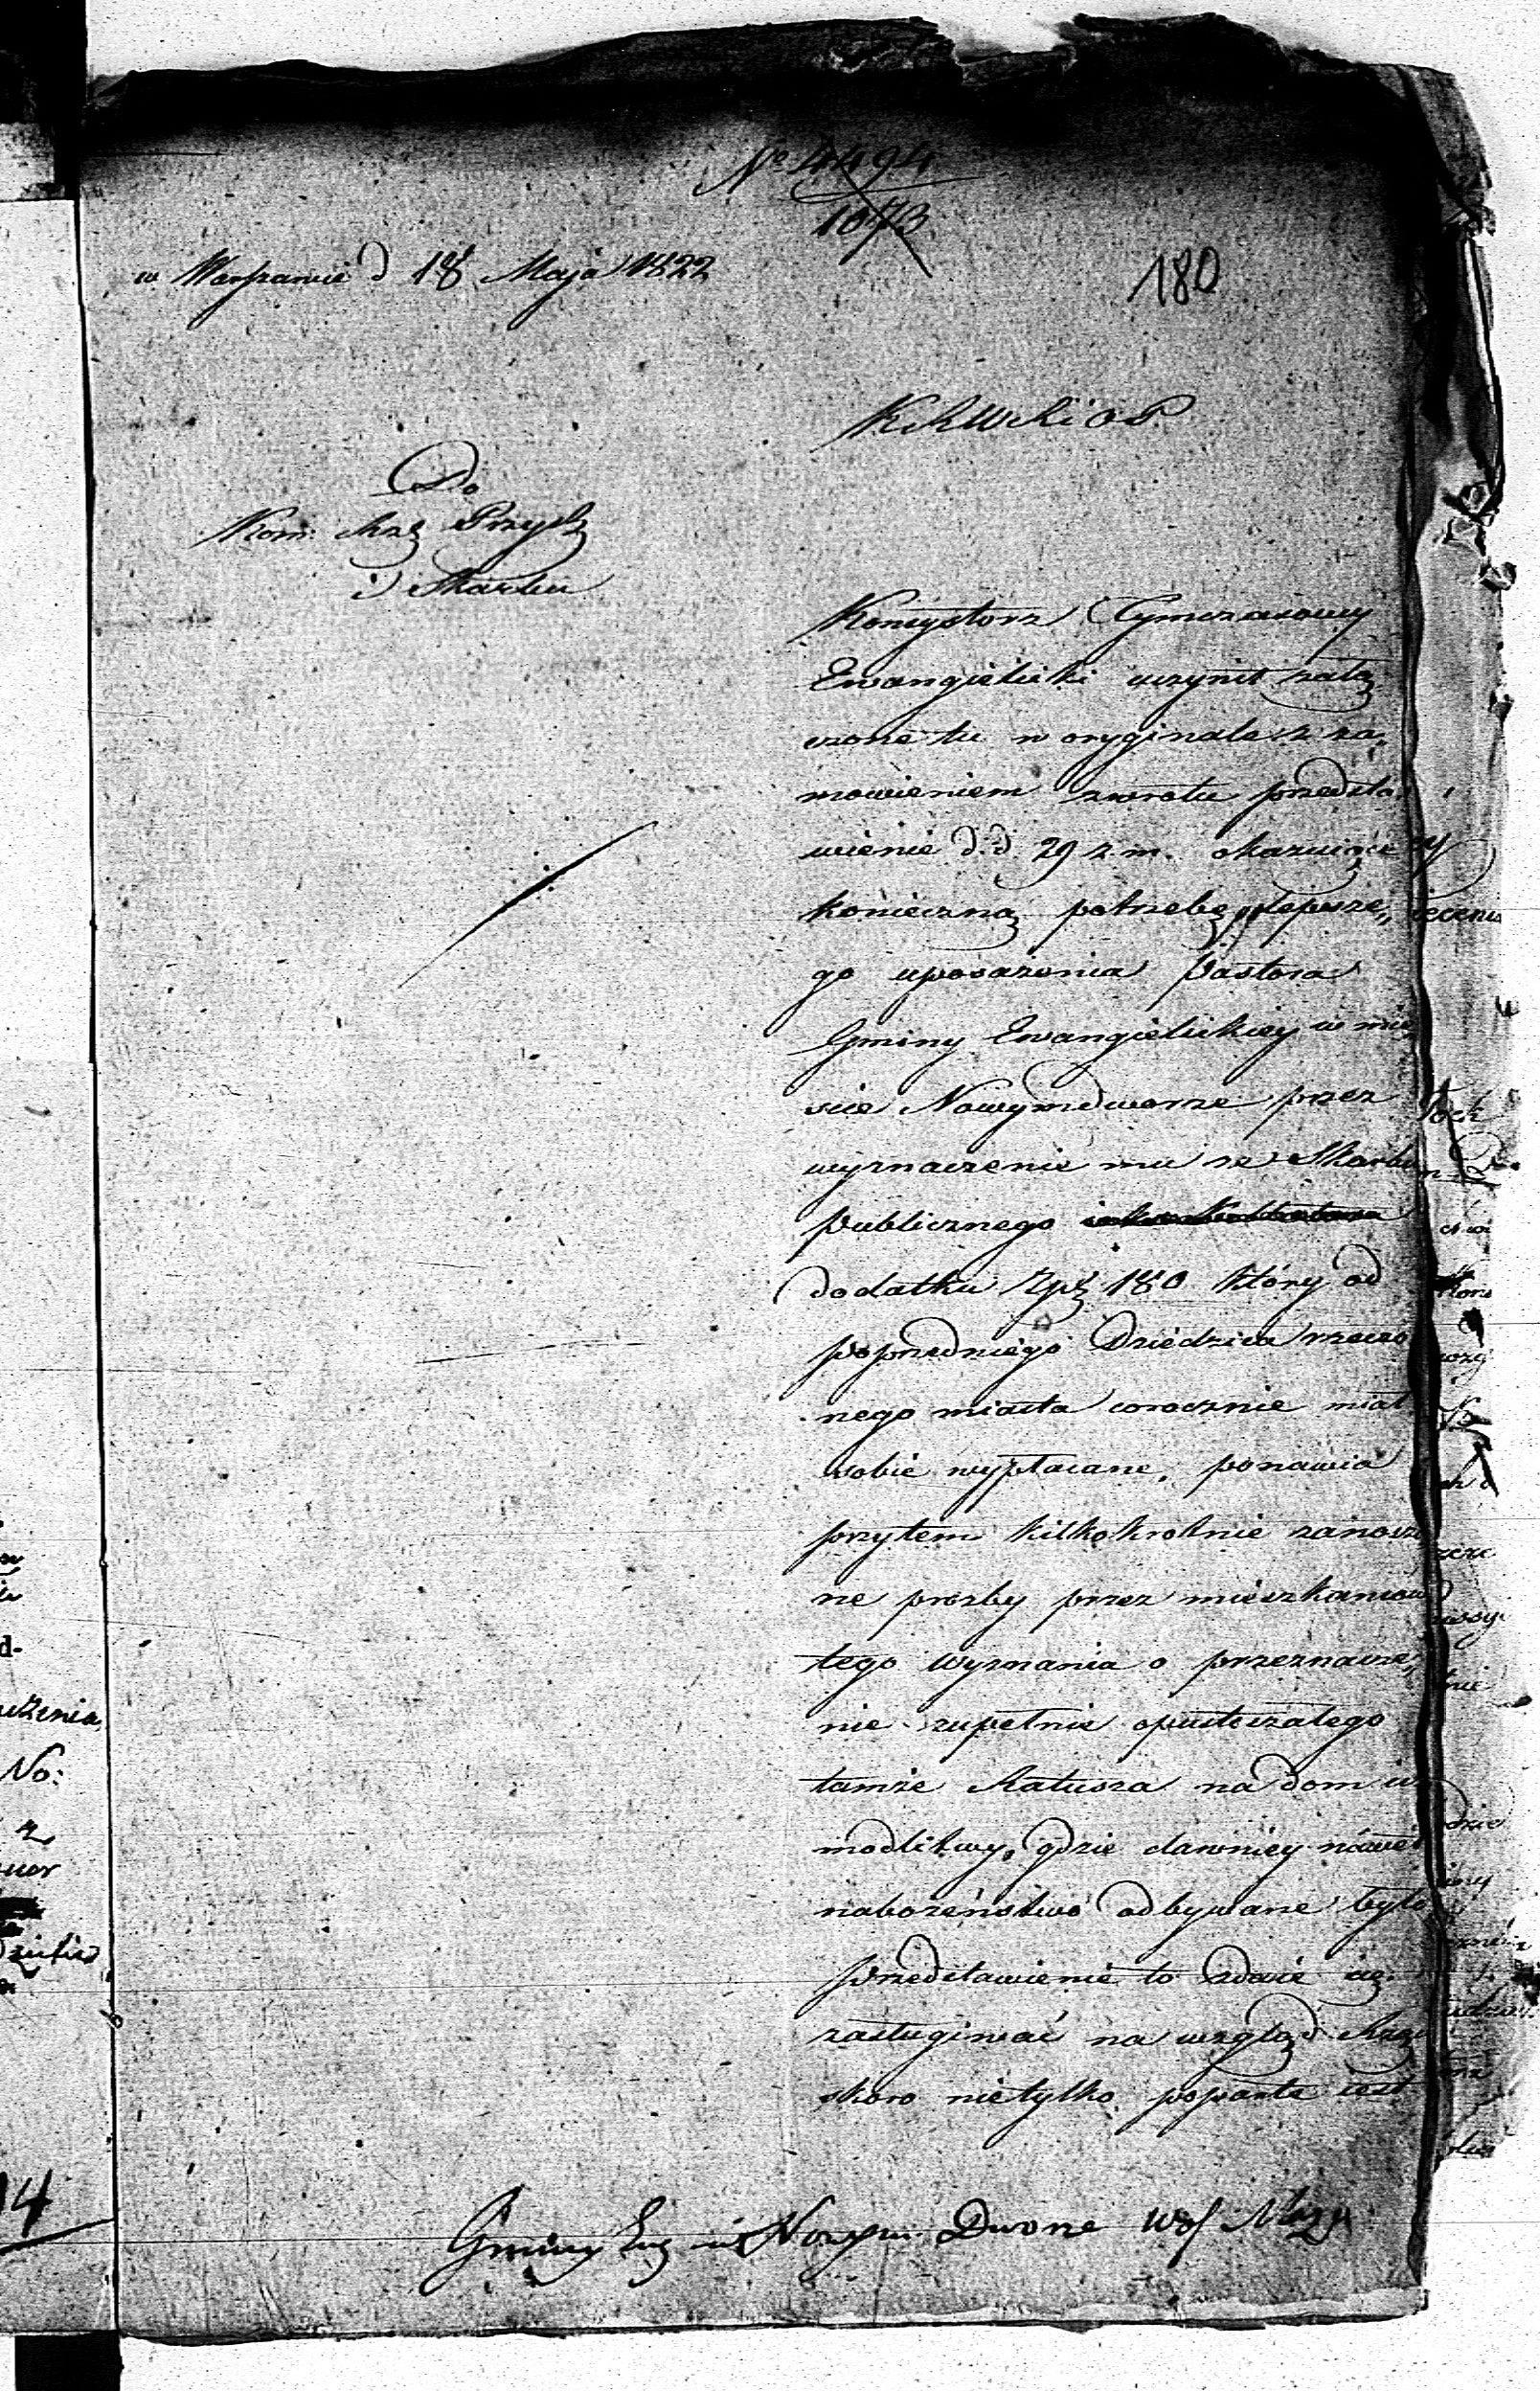 No 4494
1073
w Warszawie d 18 Maja 1822
180
K R W R i O P.
Do
Kom: Rzą Przych
i Skarbu
Konsystorz Tymczasowy
Ewangielicki uczynił załą„
czone tu w oryginale z za„
mowieniem zwrotu przedsta„
wienie d. d. 29 z. m. okazuiące
konieczną potrzebę lepsze„
go uposażenia Pastora
Gminy Ewangielickiey w mie
scie Nowymdworze przez
wyznaczenie mu ze Skarbu
Publicznego
dodatku Zpł 180 który od
poprzedniego Dziedzica rzeczo
nego miasta corocznie miał
sobie wypłacane, ponawia
przytem kilkokrotnie zanoszo
ne prosby przez mieszkancow
tego wyznania o przeznacze„
nie zupełnie opustoszałego
tamże Ratusza na dom
modlitwy, gdzie dawniey nawet
nabożeństwo odbywane było
Przedstawienie to zdaie się
zasługiwać na wzgląd Rządu
skoro nietylko poparte iest
Gminy Ewg w Nowym Dworze Wof Mazu